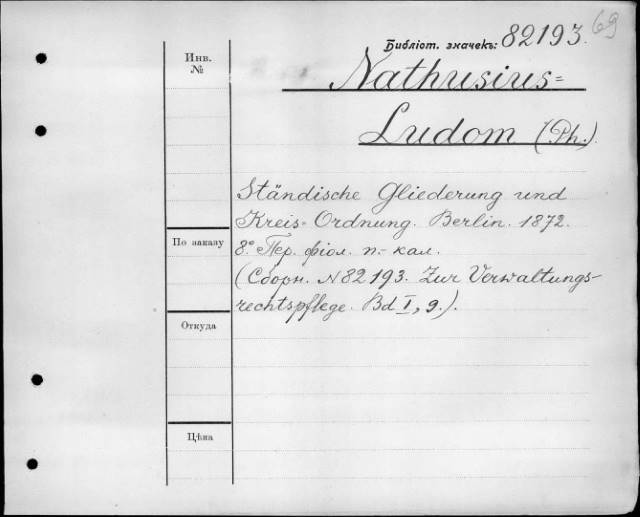 69
Библіот. значекъ: 82193.
Инв.
№
Nathusius=
Ludom (Ph.)
Ständische Gliederung und
Kreis-Ordnung. Berlin. 1872.
По заказу
8° Пер. фіол. п.-кал.
(Сборн. N 82193. Zur Verwaltungs-
rechtspflege. Bd I, 9.).
Откуда
Цѣна